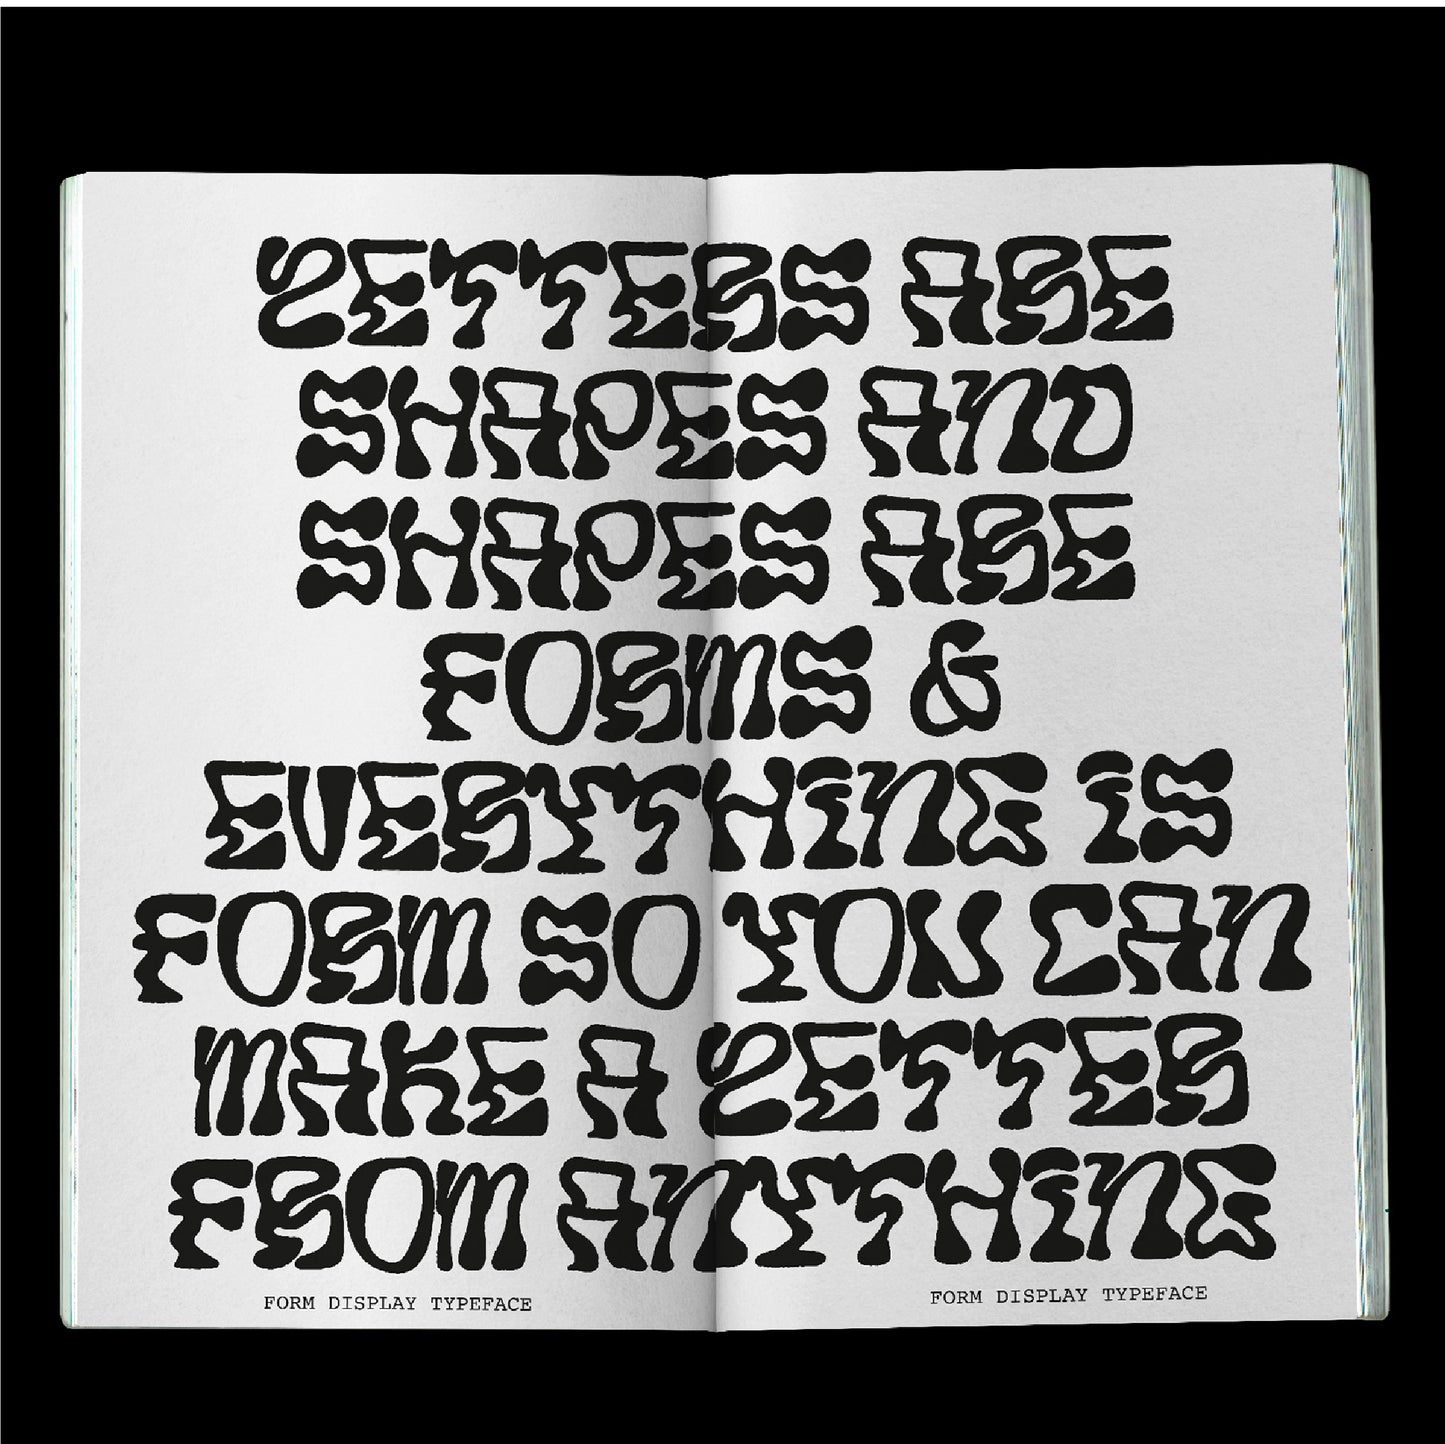 LETTERS ARE
SHAPES AND
SHAPES ARE
FORMS &
EVERYTHING IS
FORM SO YOU CAN
MAKE A LETTER
FROM ANYTHING
FORM DISPLAY TYPEFACE
FORM DISPLAY TYPEFACE